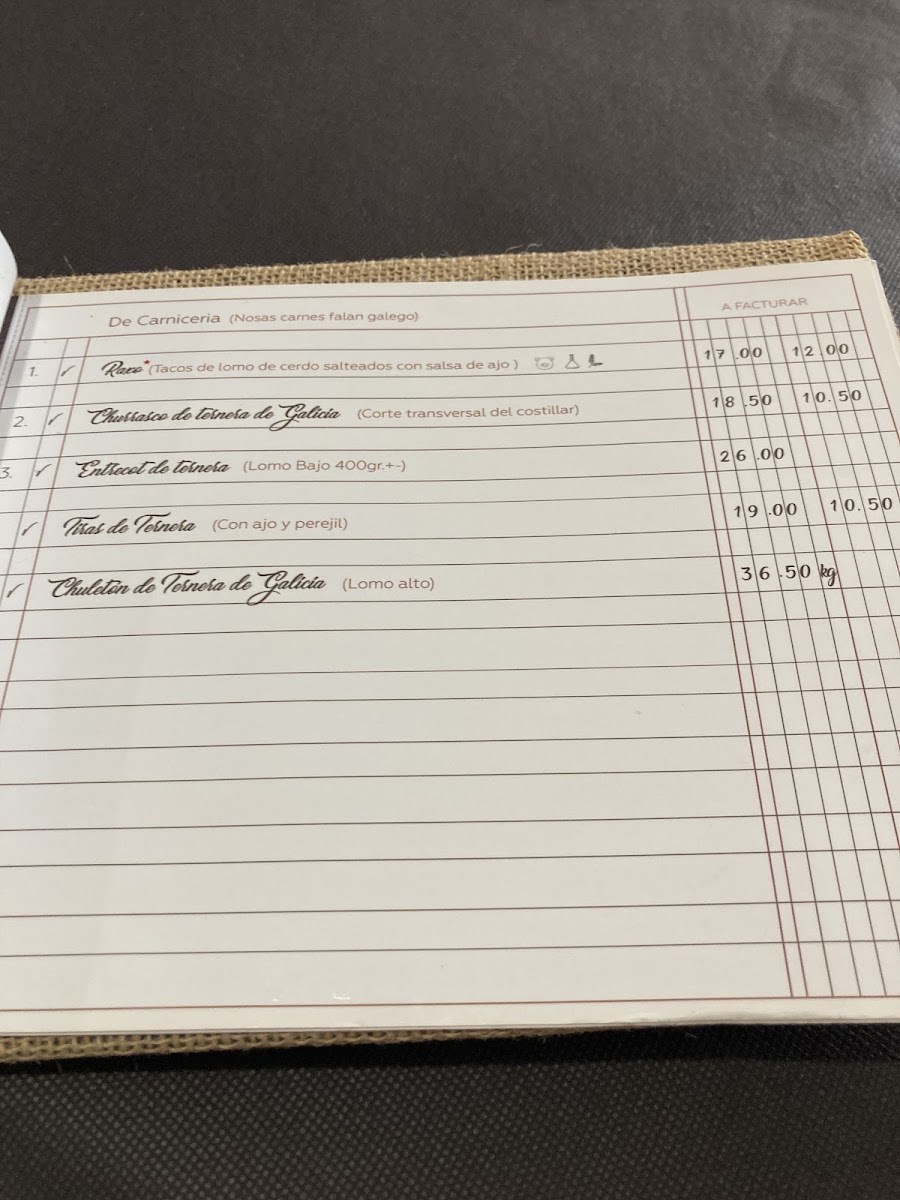 De Carniceria (Nosas carnes falan galego) A FACTURAR
1. ✓ Raxo* (Tacos de lomo de cerdo salteados con salsa de ajo ) 17.00 12.00
2. ✓ Churrasco de ternera de Galicia (Corte transversal del costillar) 18.50 10.50
3. ✓ Entrecot de ternera (Lomo Bajo 400gr.+-) 26.00
✓ Tiras de Ternera (Con ajo y perejil) 19.00 10.50
✓ Chuletón de Ternera de Galicia (Lomo alto) 36.50 kg